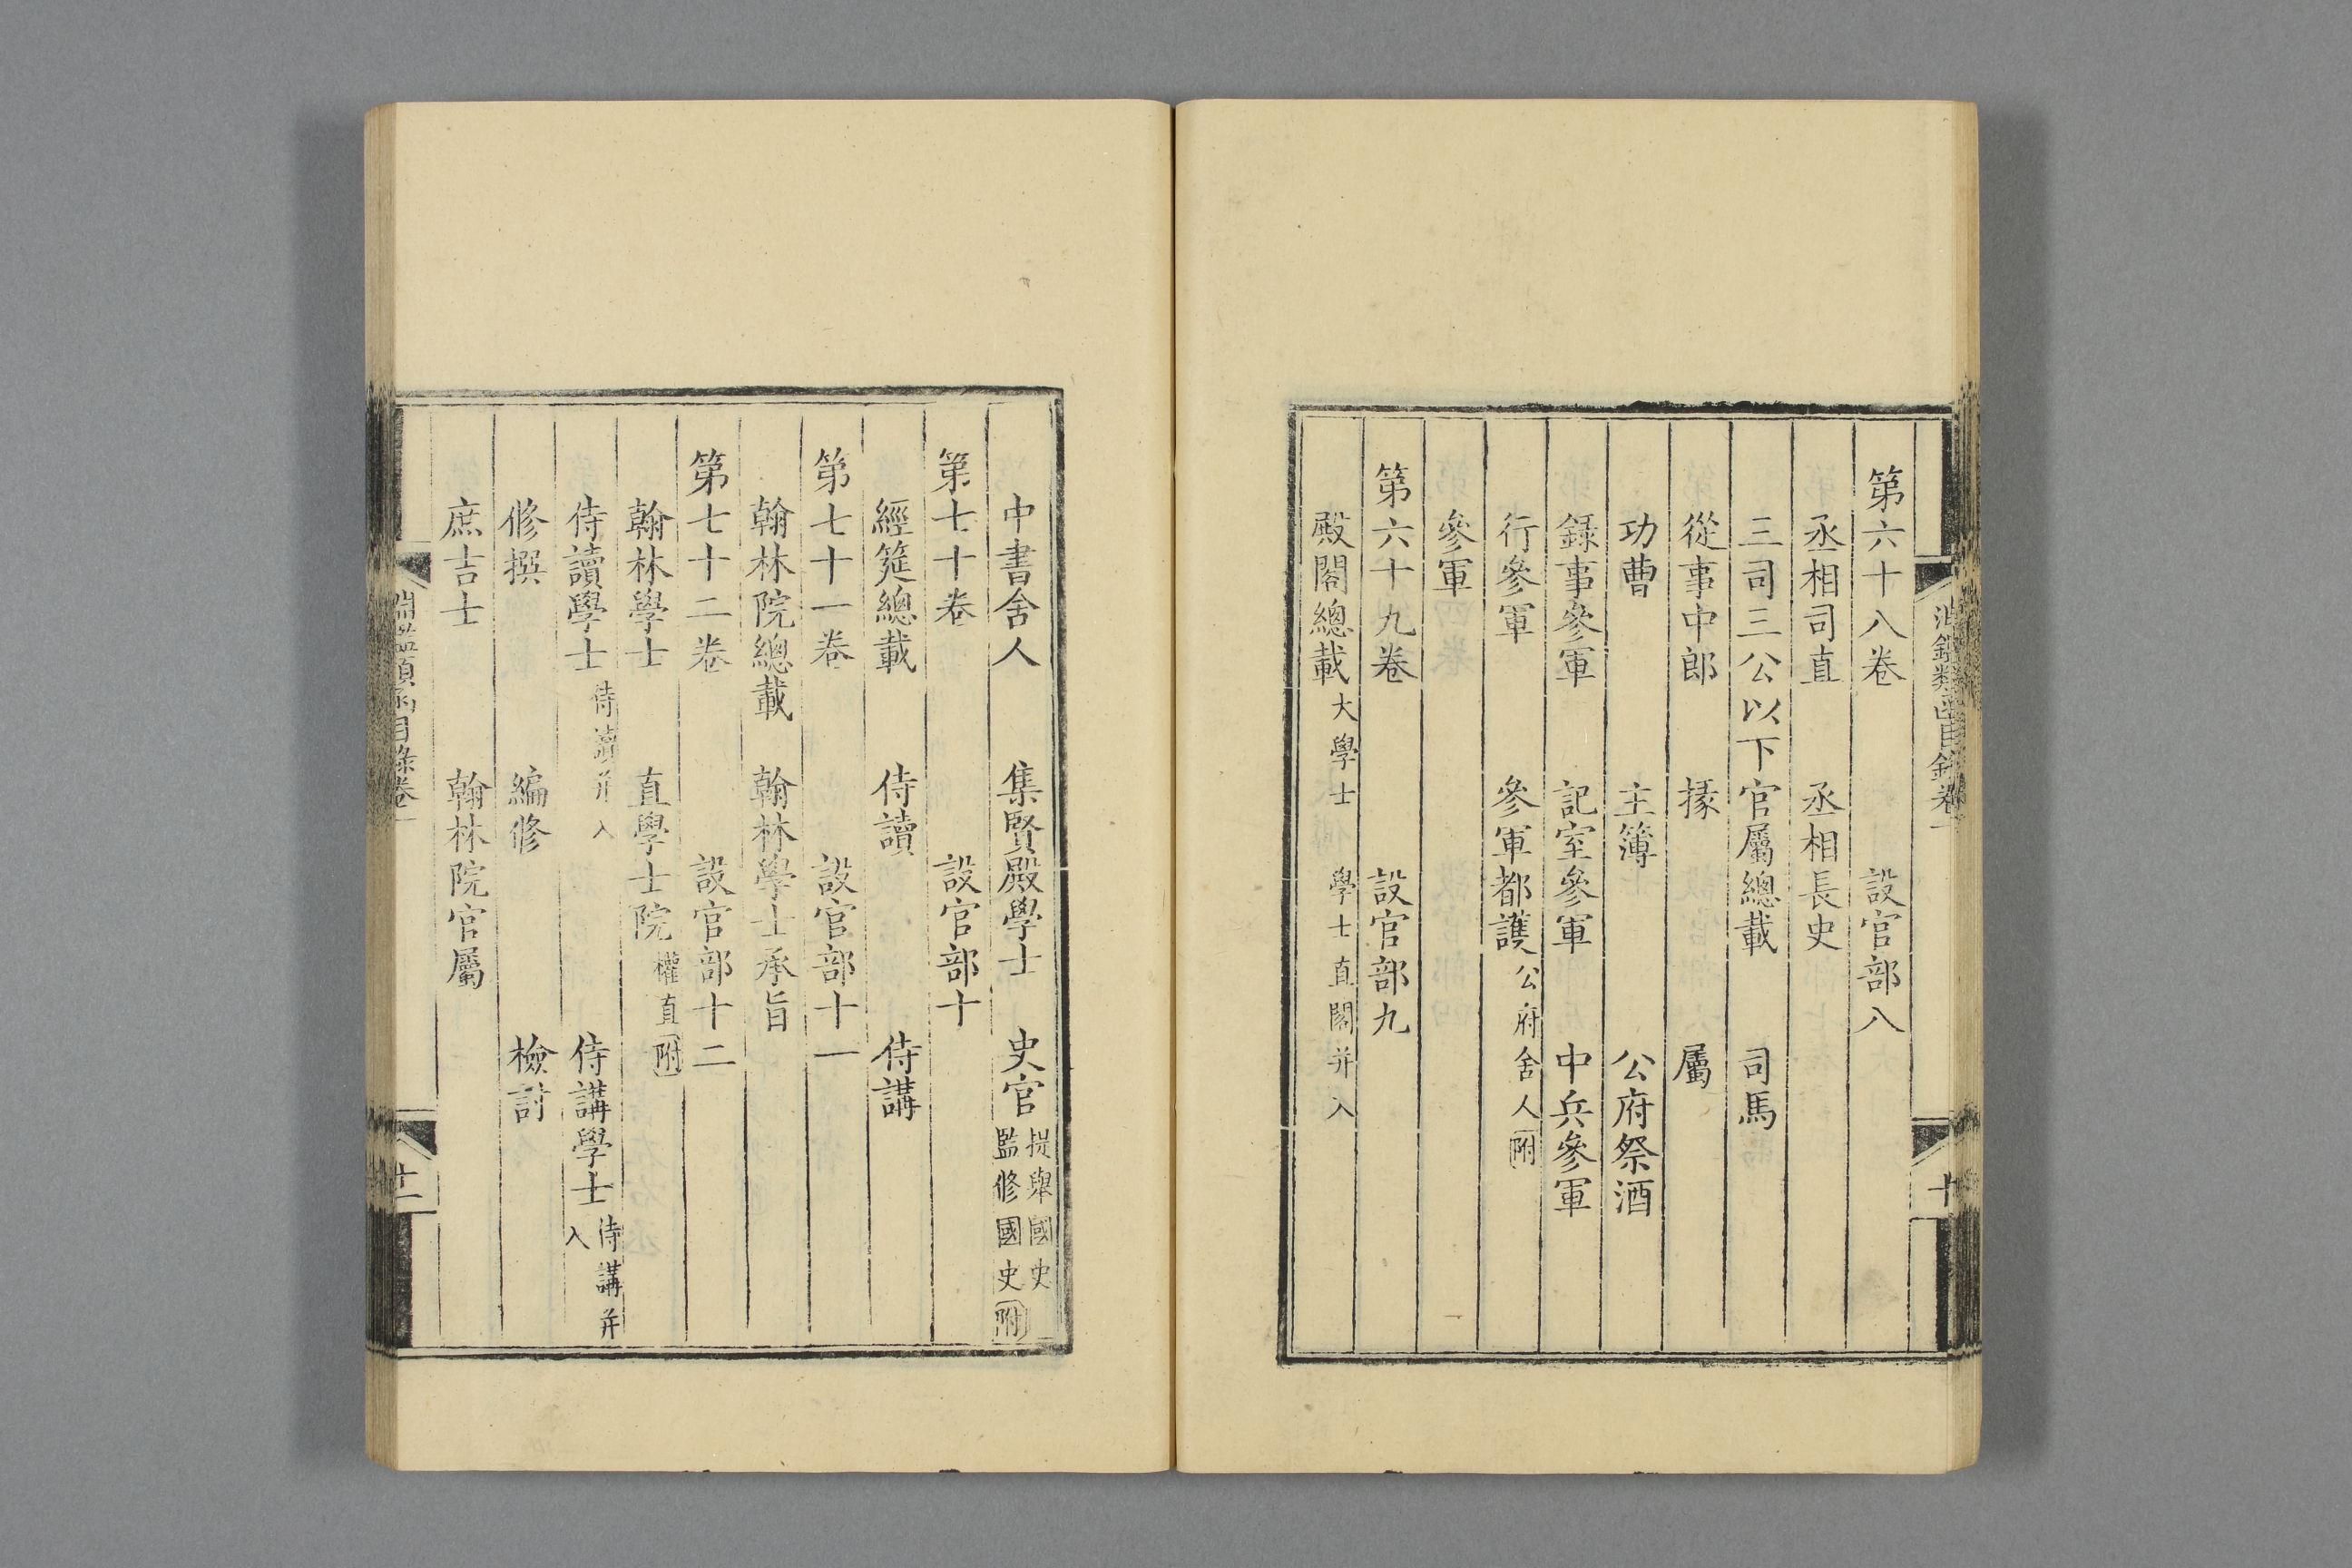 淵鑑類函目錄卷一
十
第六十八卷　設官部八
丞相司直　丞相長史
三司三公以下官屬總載　司馬
從事中郎　掾　屬
功曹　主簿　公府祭酒
錄事參軍　記室參軍　中兵參軍
行參軍　參軍都護 公府舍人 附
參軍
第六十九卷　設官部九
殿閣總載 大學士　學士直閣并入
中書舍人　集賢殿學士　史官 提舉國史 監修國史 附
第七十卷　設官部十
經筵總載　侍讀　侍講
第七十一卷　設官部十一
翰林院總載　翰林學士承旨
第七十二卷　設官部十二
翰林學士　直學士院 權直 附
侍讀學士 侍讀并入　侍講學士 侍講并入
修撰　編修　檢討
庶吉士　翰林院官屬
淵鑑類函目錄卷一
十一